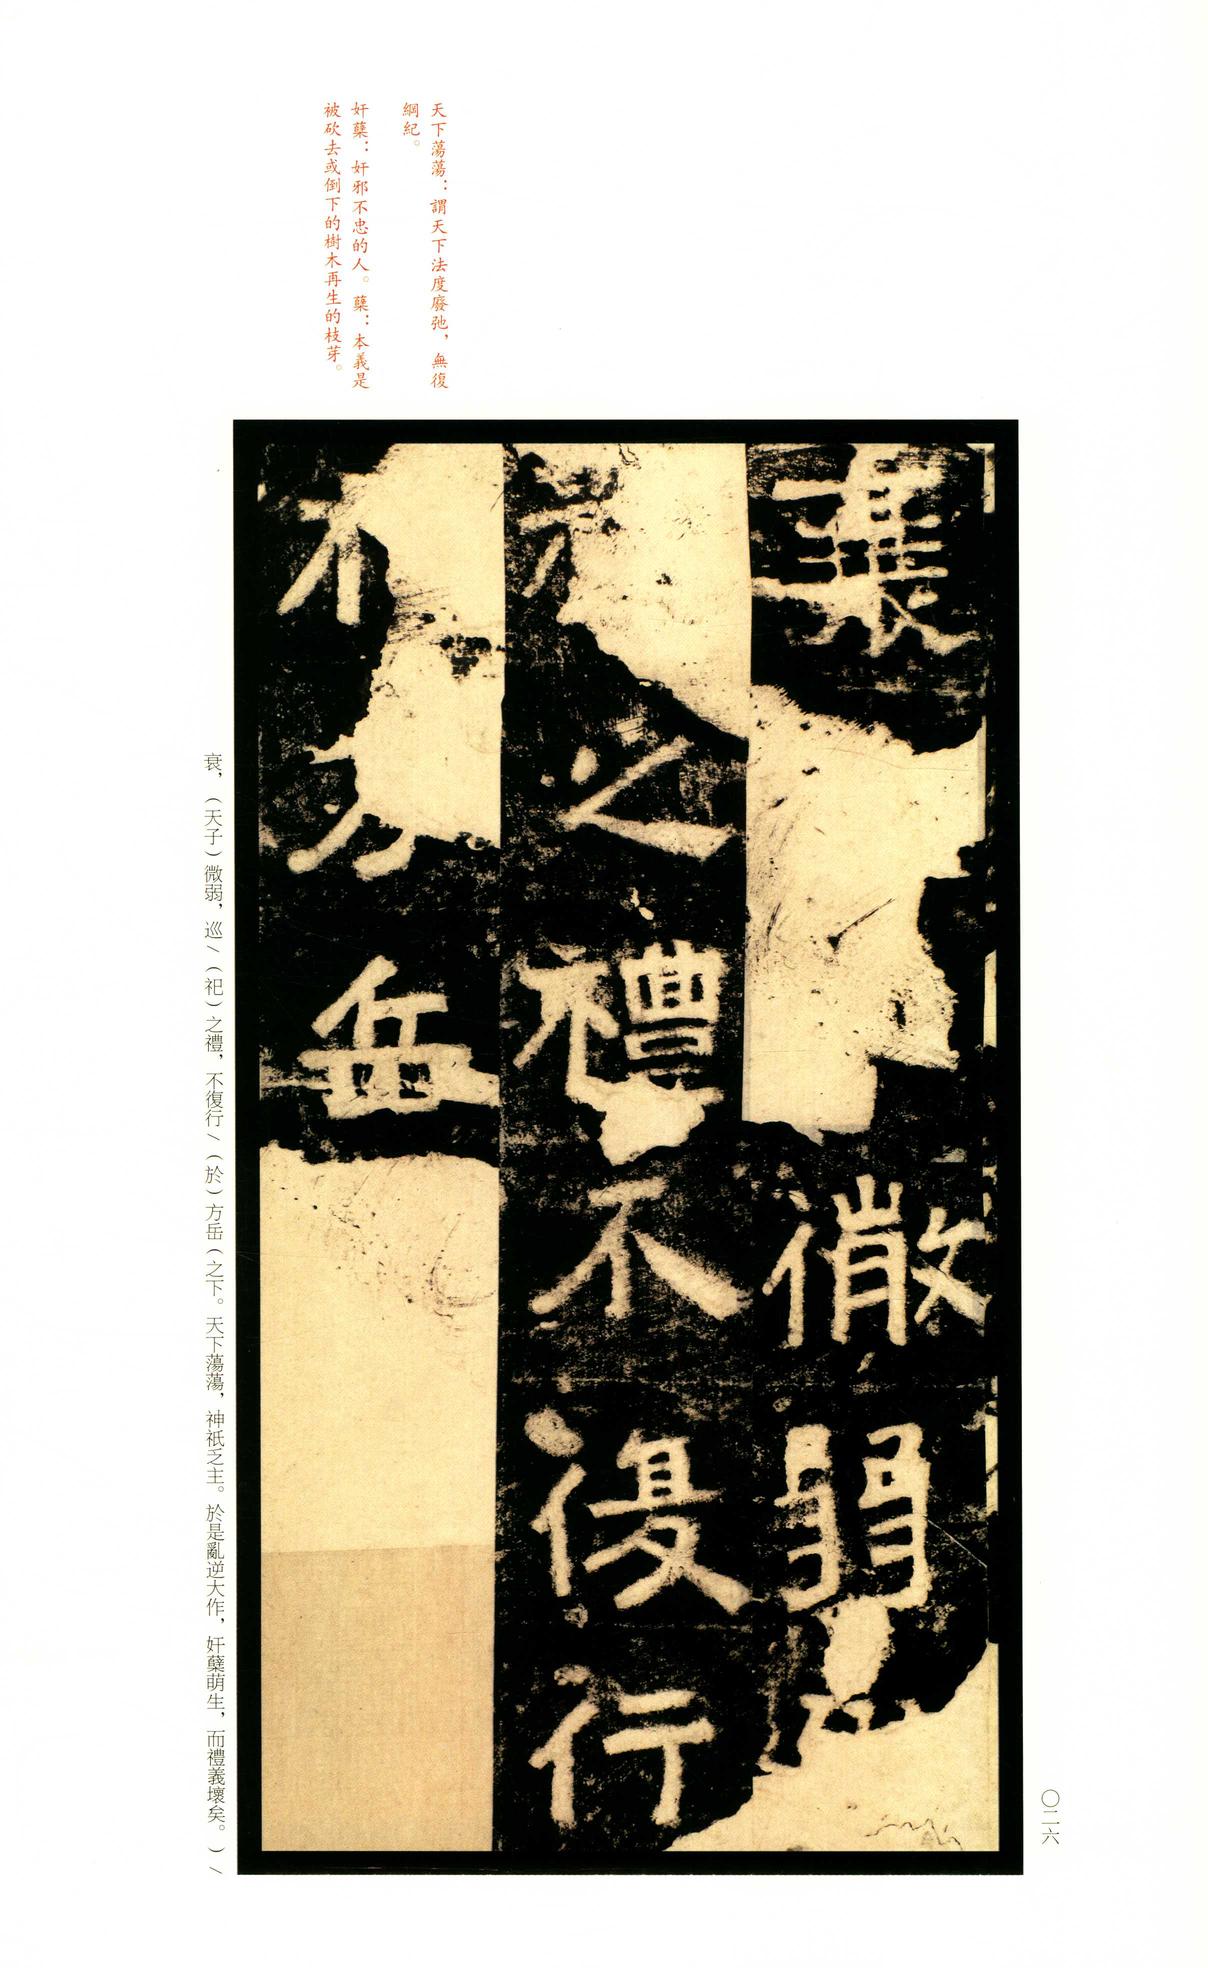 天下蕩蕩：謂天下法度廢弛，無復
綱紀。
奸蘖：奸邪不忠的人。蘖：本義是
被砍去或倒下的樹木再生的枝芽。
衰
微弱
之禮不復行
方岳
衰，（天子）微弱，巡／（祀）之禮，不復行／（於）方岳（之下。天下蕩蕩，神祇乏主。於是亂逆大作，奸蘖萌生，而禮義壞矣。）／
〇二六